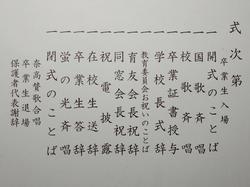 式次第
卒業生入場
一開式のことば
一国歌斉唱
一校歌斉唱
一卒業証書授与
一学校長式辞
教育委員会お祝いのことば
一育友会長祝辞
一同窓会長祝辞
一祝電披露
一在校生送辞
一卒業生答辞
一蛍の光斉唱
一閉式のことば
奈高賛歌合唱
卒業生退場
保護者代表謝辞